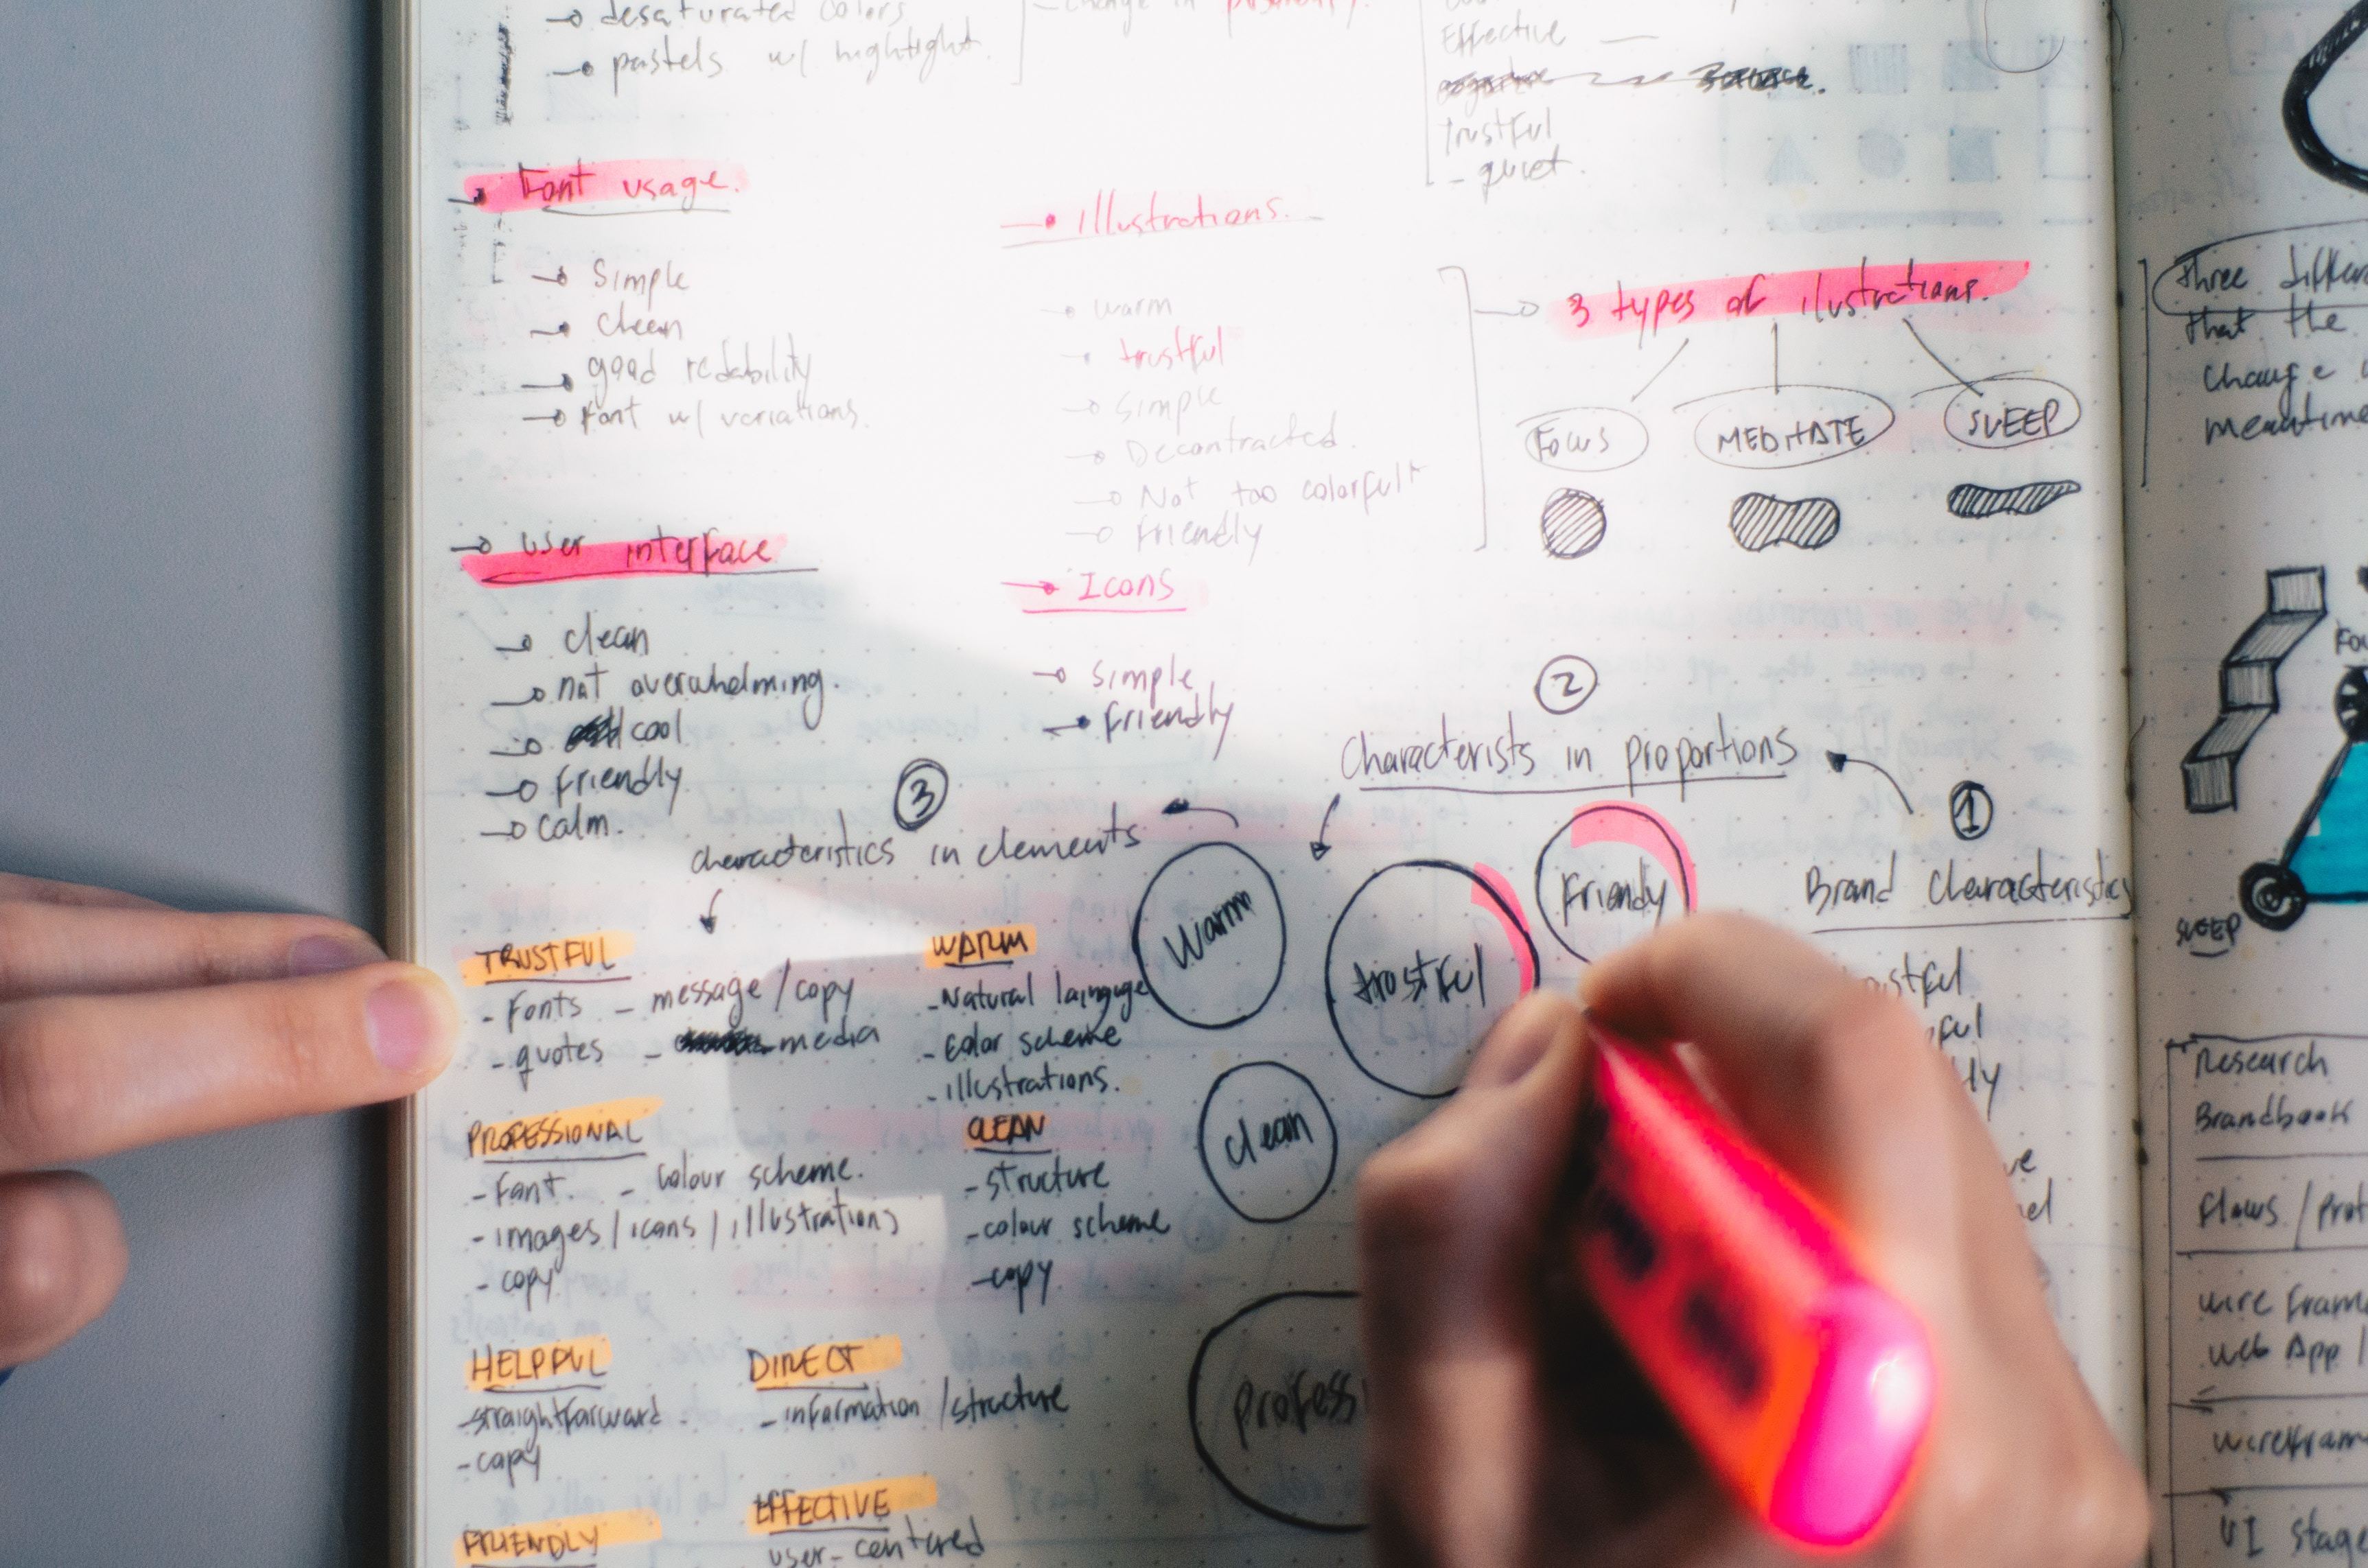 desaturated colors
pastels w/ hightlight.
change in
Effective
trustful
- quiet.
Font usage.
Simple
clean
good redability
Font w/ variations.
illustrations.
warm
trustful
simple
Decontracted.
Not too colorfull
Friendly
3 types of ilustrations.
Focus
MEDITATE
SLEEP
User interface
clean
not overwhelming.
cool
Friendly
calm.
Icons
simple
Friendly
2
Characterists in proportions
1
Brand Characteristics
3
characteristics in elements
Warm
trustful
Friendy
clean
TRUSTFUL
- Fonts - message / copy
- quotes - media
WARM
- Color scheme
- illustrations.
PROFESSIONAL
- Font. - Colour scheme.
- images / icons / illustrations
- copy
CLEAN
- structure
- colour scheme
- copy
HELPFUL
- straightforward
- copy
DIRECT
- information / structure
FRIENDLY
EFFECTIVE
user-centered
three
that the
change
meantime
SLEEP
Research
Brandbook
Flows /
wire
web App /
UI